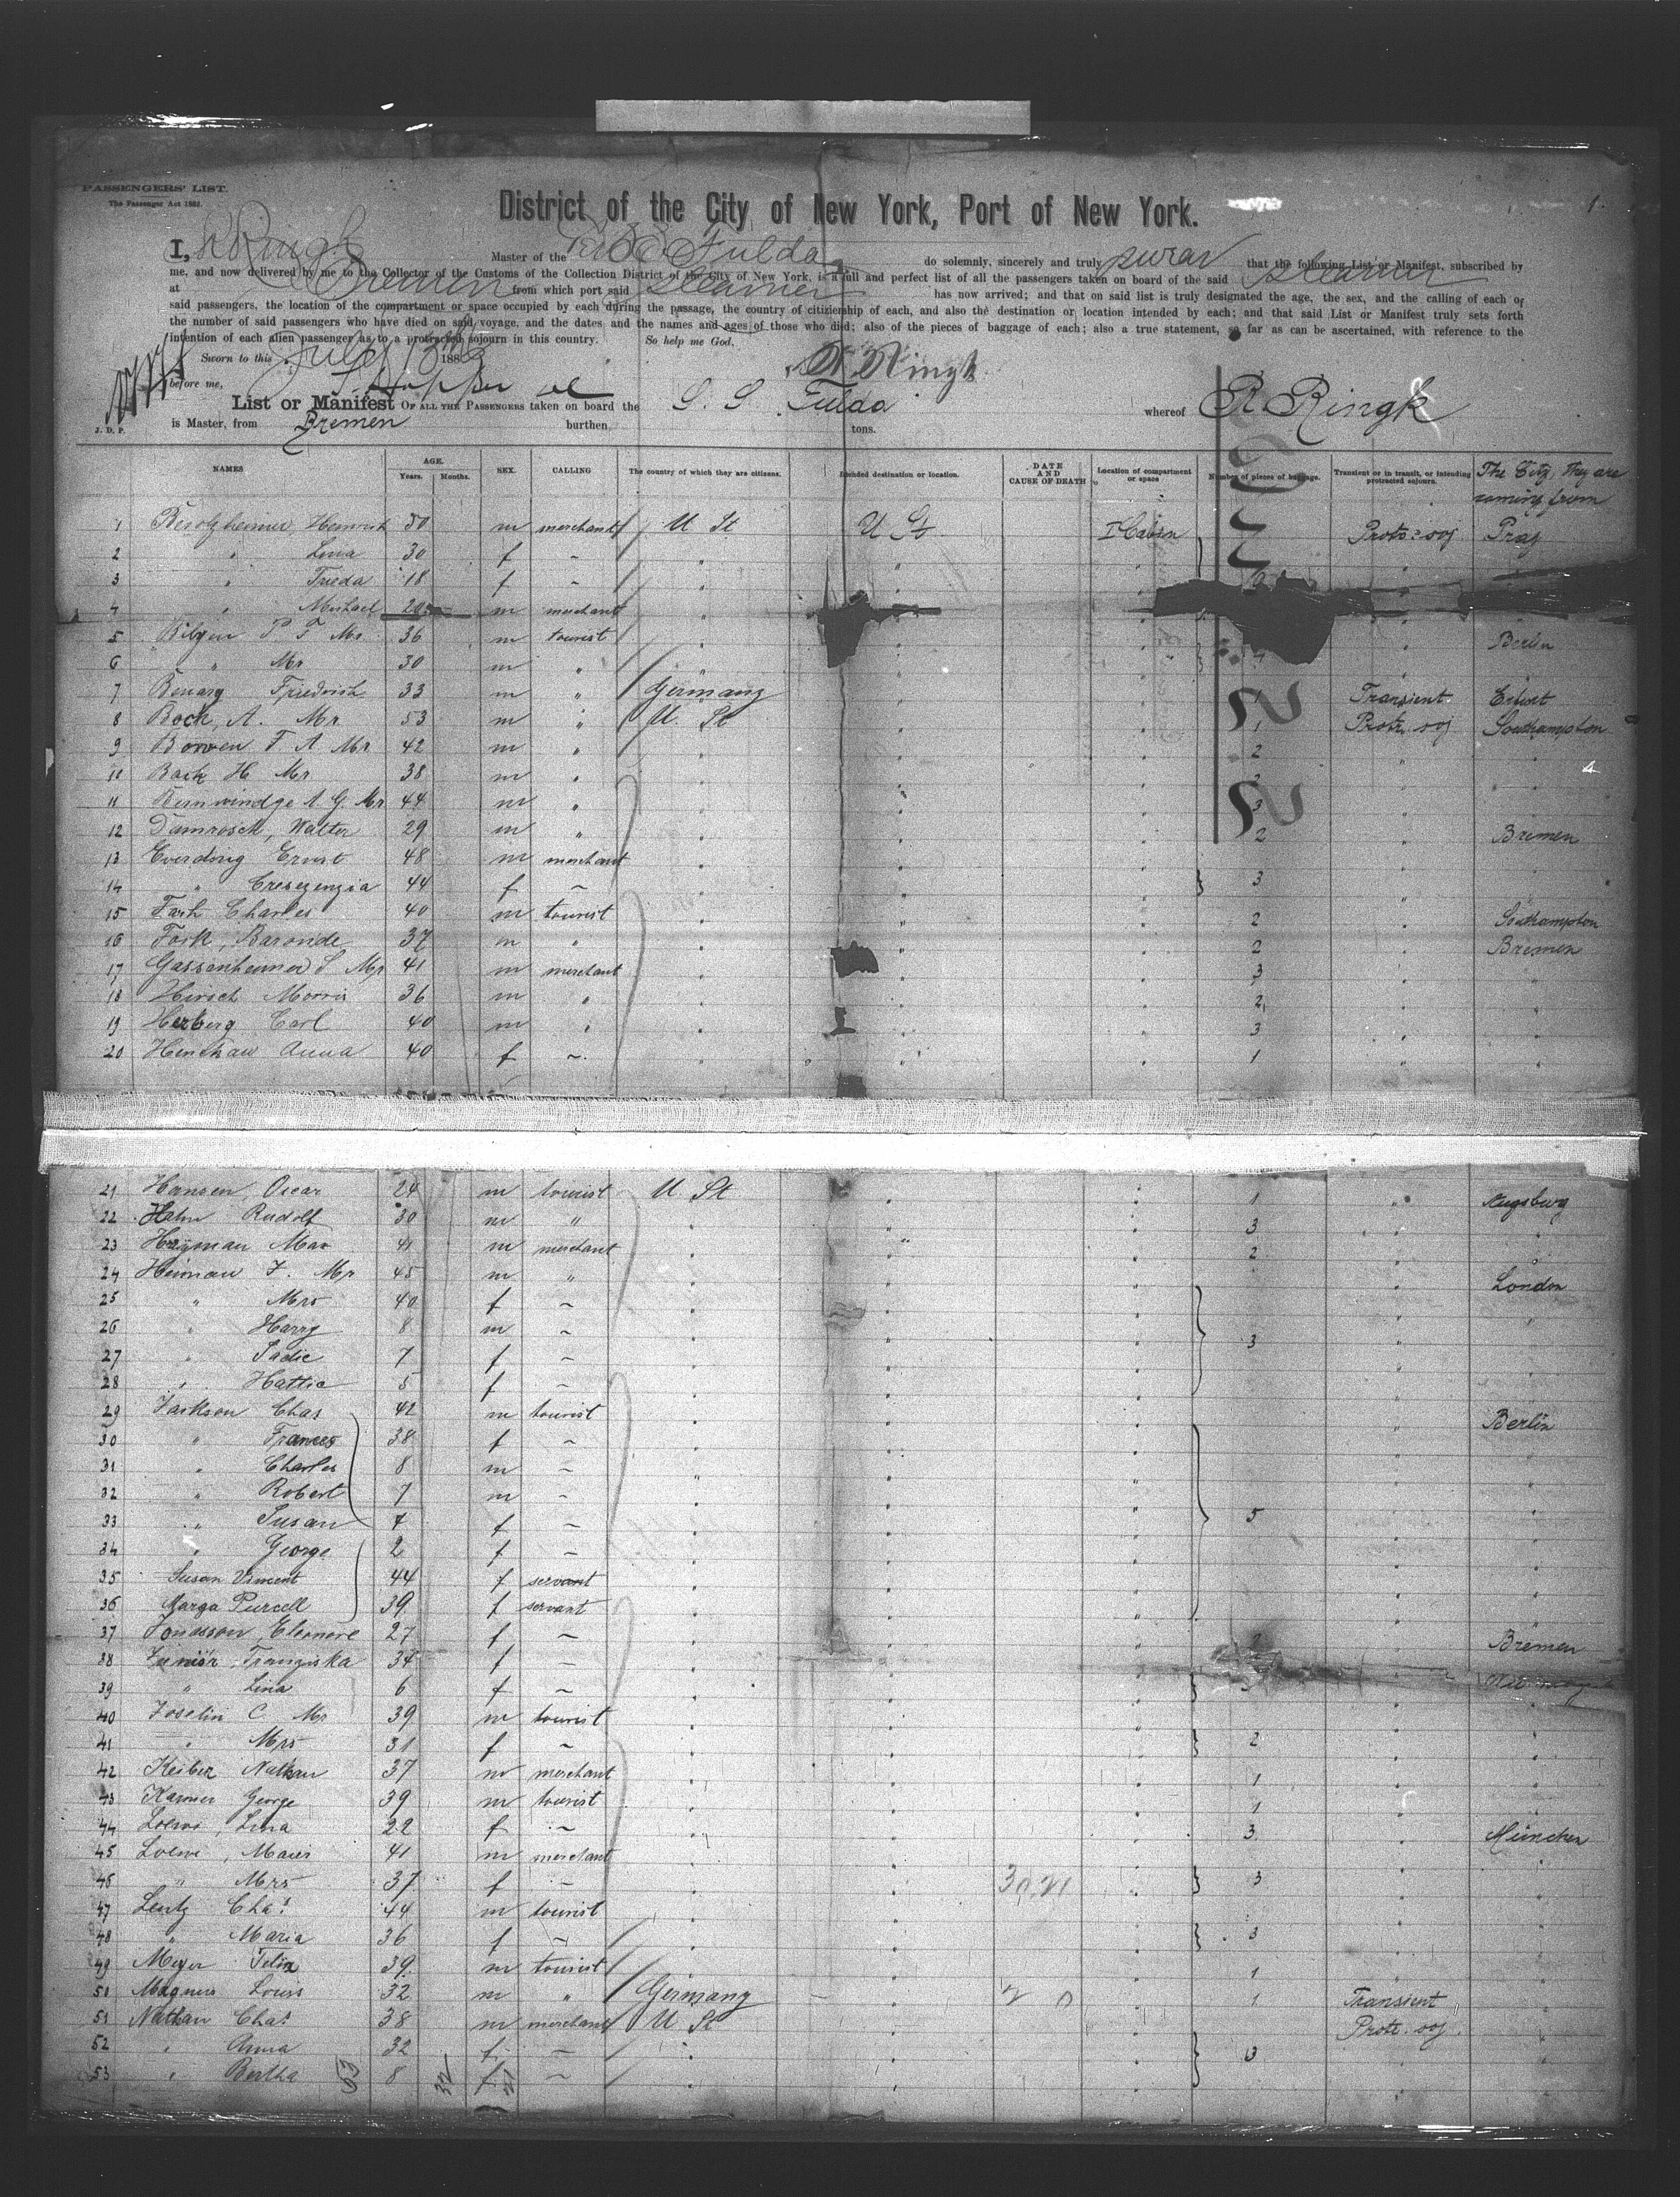 PASSENGERS' LIST.
The Passenger Act 1882.
1.
District of the City of New York, Port of New York.
I, R Ringk Master of the Fulda do solemnly, sincerely and truly swear that the following List or Manifest, subscribed by
me, and now delivered by me to the Collector of the Customs of the Collection District of the City of New York, is a full and perfect list of all the passengers taken on board of the said steamer
at Bremen from which port said steamer has now arrived; and that on said list is truly designated the age, the sex, and the calling of each of
said passengers, the location of the compartment or space occupied by each during the passage, the country of citizenship of each, and also the destination or location intended by each; and that said List or Manifest truly sets forth
the number of said passengers who have died on said voyage, and the dates and the names and ages of those who died; also of the pieces of baggage of each; also a true statement, so far as can be ascertained, with reference to the
intention of each alien passenger as to a protracted sojourn in this country. So help me God,
Sworn to this July 188
before me, R. Ringk
List or Manifest OF ALL THE PASSENGERS taken on board the S. S. Fulda whereof R Ringk
J. D. P. is Master, from Bremen burthen tons.
NAMES AGE. Years. Months. SEX. CALLING The country of which they are citizens. Intended destination or location. DATE AND CAUSE OF DEATH Location of compartment or space Number of pieces of baggage. Transient or in transit, or intending protracted sojourn. The City, they are coming from
1 Heinrich 50 m merchant U St U St I Cabin Protr: soj Prag
2 " Lina 30 f ~ "
3 " Frieda 18 f ~ "
4 " Michael 20 m merchant
5 P. F. Mr. 36 m tourist " Berlin
6 " Mr 30 m " " 4
7 Benary Friedrich 33 m " Germany 1 Transient Erfurt
8 Bock, A. Mr 53 m " U. St 1 Protr. soj Southampton
9 Bowen F. A Mr 42 m " " 2
10 Back H Mr 38 m " " 2
11 A. G. Mr 44 m " " 3
12 Damrosch, Walter 29 m " " 2 Bremen
13 Everding Ernst 48 m merchant
14 " Creszenzia 44 f ~ } 3
15 Charles 40 m tourist " 2 Southampton
16 Baronde 37 m " " 2 Bremen
17 Gassenheimer S Mr 41 m merchant " 3
18 Hirsch Morris 36 m " " 2
19 Herberg Carl 40 m " " 3
20 Henshaw Anna 40 f ~ " 1
21 Hansen, Oscar 24 m tourist U St 1 Augsburg
22 Hahn Rudolf 30 m " " 3
23 Heyman Max 41 m merchant " 2
24 Heiman F. Mr 45 m " " London
25 " Mrs 40 f ~
26 " Harry 8 m ~
27 " Sadie 7 f ~ 3
28 " Hattie 5 f ~
29 Jackson Chas 42 m tourist Berlin
30 " Frances 38 f ~
31 " Charles 8 m ~
32 " Robert 7 m ~
33 " Susan 4 f ~ 5
34 " George 2 f ~
35 Susan Vincent 44 f servant
36 Marga Purcell 39 f servant
37 Jonasson, Eleonore 27 f ~ 2 Bremen
38 Franziska 34 f ~
39 " Lina 6 f ~
40 Joselin C. Mr 39 m tourist
41 " Mrs 31 f ~ } 2
42 Keiber Nathan 37 m merchant 1
43 Kamer George 39 m tourist 1
44 Loewi, Lina 22 f ~ 3 München
45 Loewe, Maier 41 m merchant
46 " Mrs 37 f ~ } 3
47 Lentz Chas 44 m tourist
48 " Maria 36 f ~ } 3
49 Meyer Felix 39 m tourist 1
50 Magnus Louis 32 m " Germany 1 Transient
51 Nathan Chas 38 m merchant U St Protr. soj
52 " Anna 32 f ~ 3
53 " Bertha 8 f ~
53 32 21